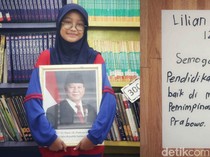 Lilian
Semoga
Pendidika
baik di m
Pemimpina
Prabowo.
300
detikcom